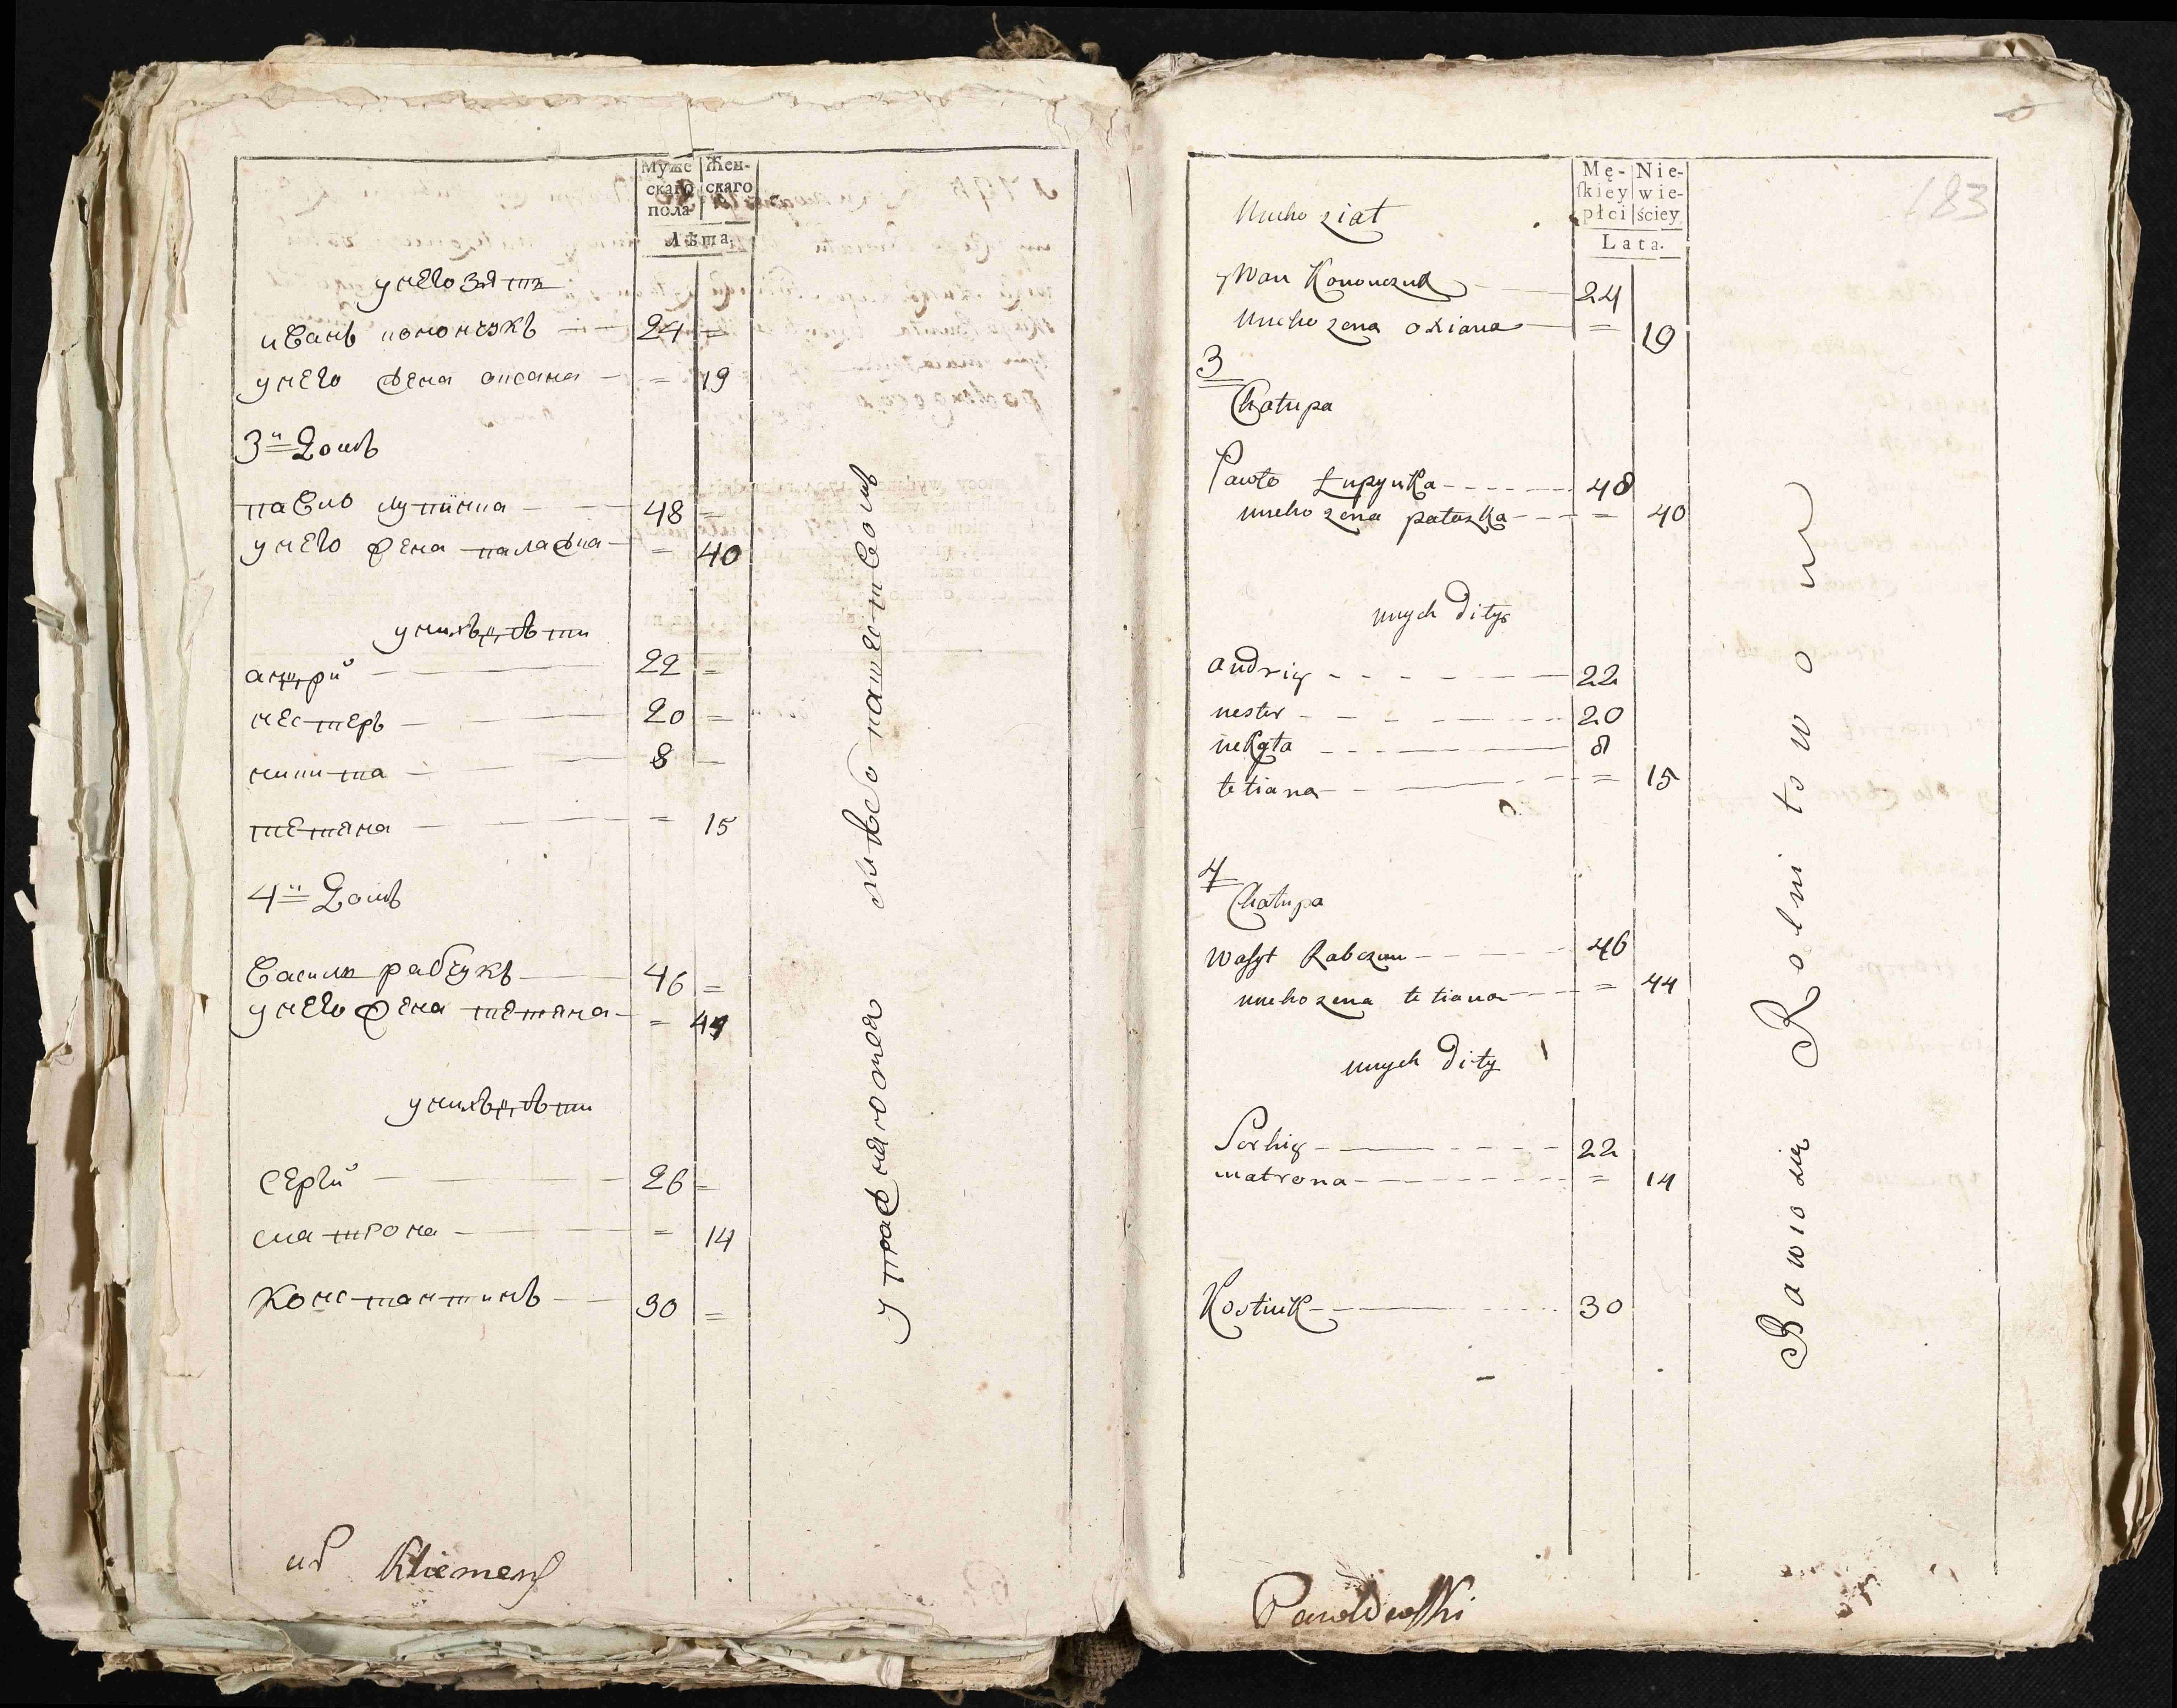 Муже
скаго
пола
Жен-
скаго
Лѣта.
у него зять
иванъ конончюкъ 24 =
у него жена оксана = 19
3й домъ
павло лупинка 48 =
у него жена палажка = 40
у нихъ дѣти
андри 22 =
нестеръ 20 =
никита 8 =
тетяна = 15
4й домъ
василь рабчукъ 46 =
у него жена тетяна = 44
у нихъ дѣти
сергий 26 =
матрона = 14
Константинъ 30 =
упражняются хлѣбопашествомъ
Kliemens
183
Mę-
skiey
płci
Nie-
wie-
ściey
Lata.
Unieho ziat
ywan Kononczuk 24
Unieho zena oxiana = 19
3
Chałupa
Pawło Łupynka 48
unieho zena pałazka = 40
unych dity
andriy 22
nester 20
nekyta 8
tetiana = 15
4
Chałupa
wasyl Rabczuu 46
unieho zena tetiana = 44
unych dity
Serhiy 22
matrona = 14
Kostiuk 30
Bawio się Rolnitswom